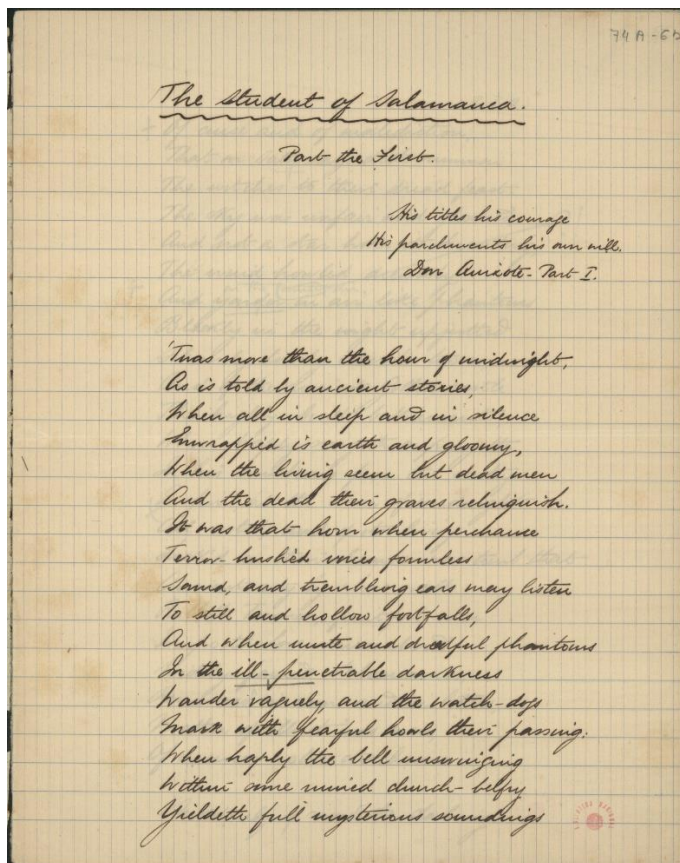 74A-65
The Student of Salamanca.
Part the First.
His titles his courage
His parchments his own will.
Don Quixote - Part I.
'Twas more than the hour of midnight,
As is told by ancient stories,
When all in sleep and in silence
Enwrapped is earth and gloomy,
When the living seem but dead men
And the dead their graves relinquish.
It was that hour when perchance
Terror-hushèd voices formless
Sound, and trembling ears may listen
To still and hollow footfalls,
And when mute and dreadful phantoms
In the ill-penetrable darkness
Wander vaguely, and the watch-dogs
Mark with fearful howls their passing:
When haply the bell unswinging
Within some ruined church-belfry
Yieldeth full mysterious soundings